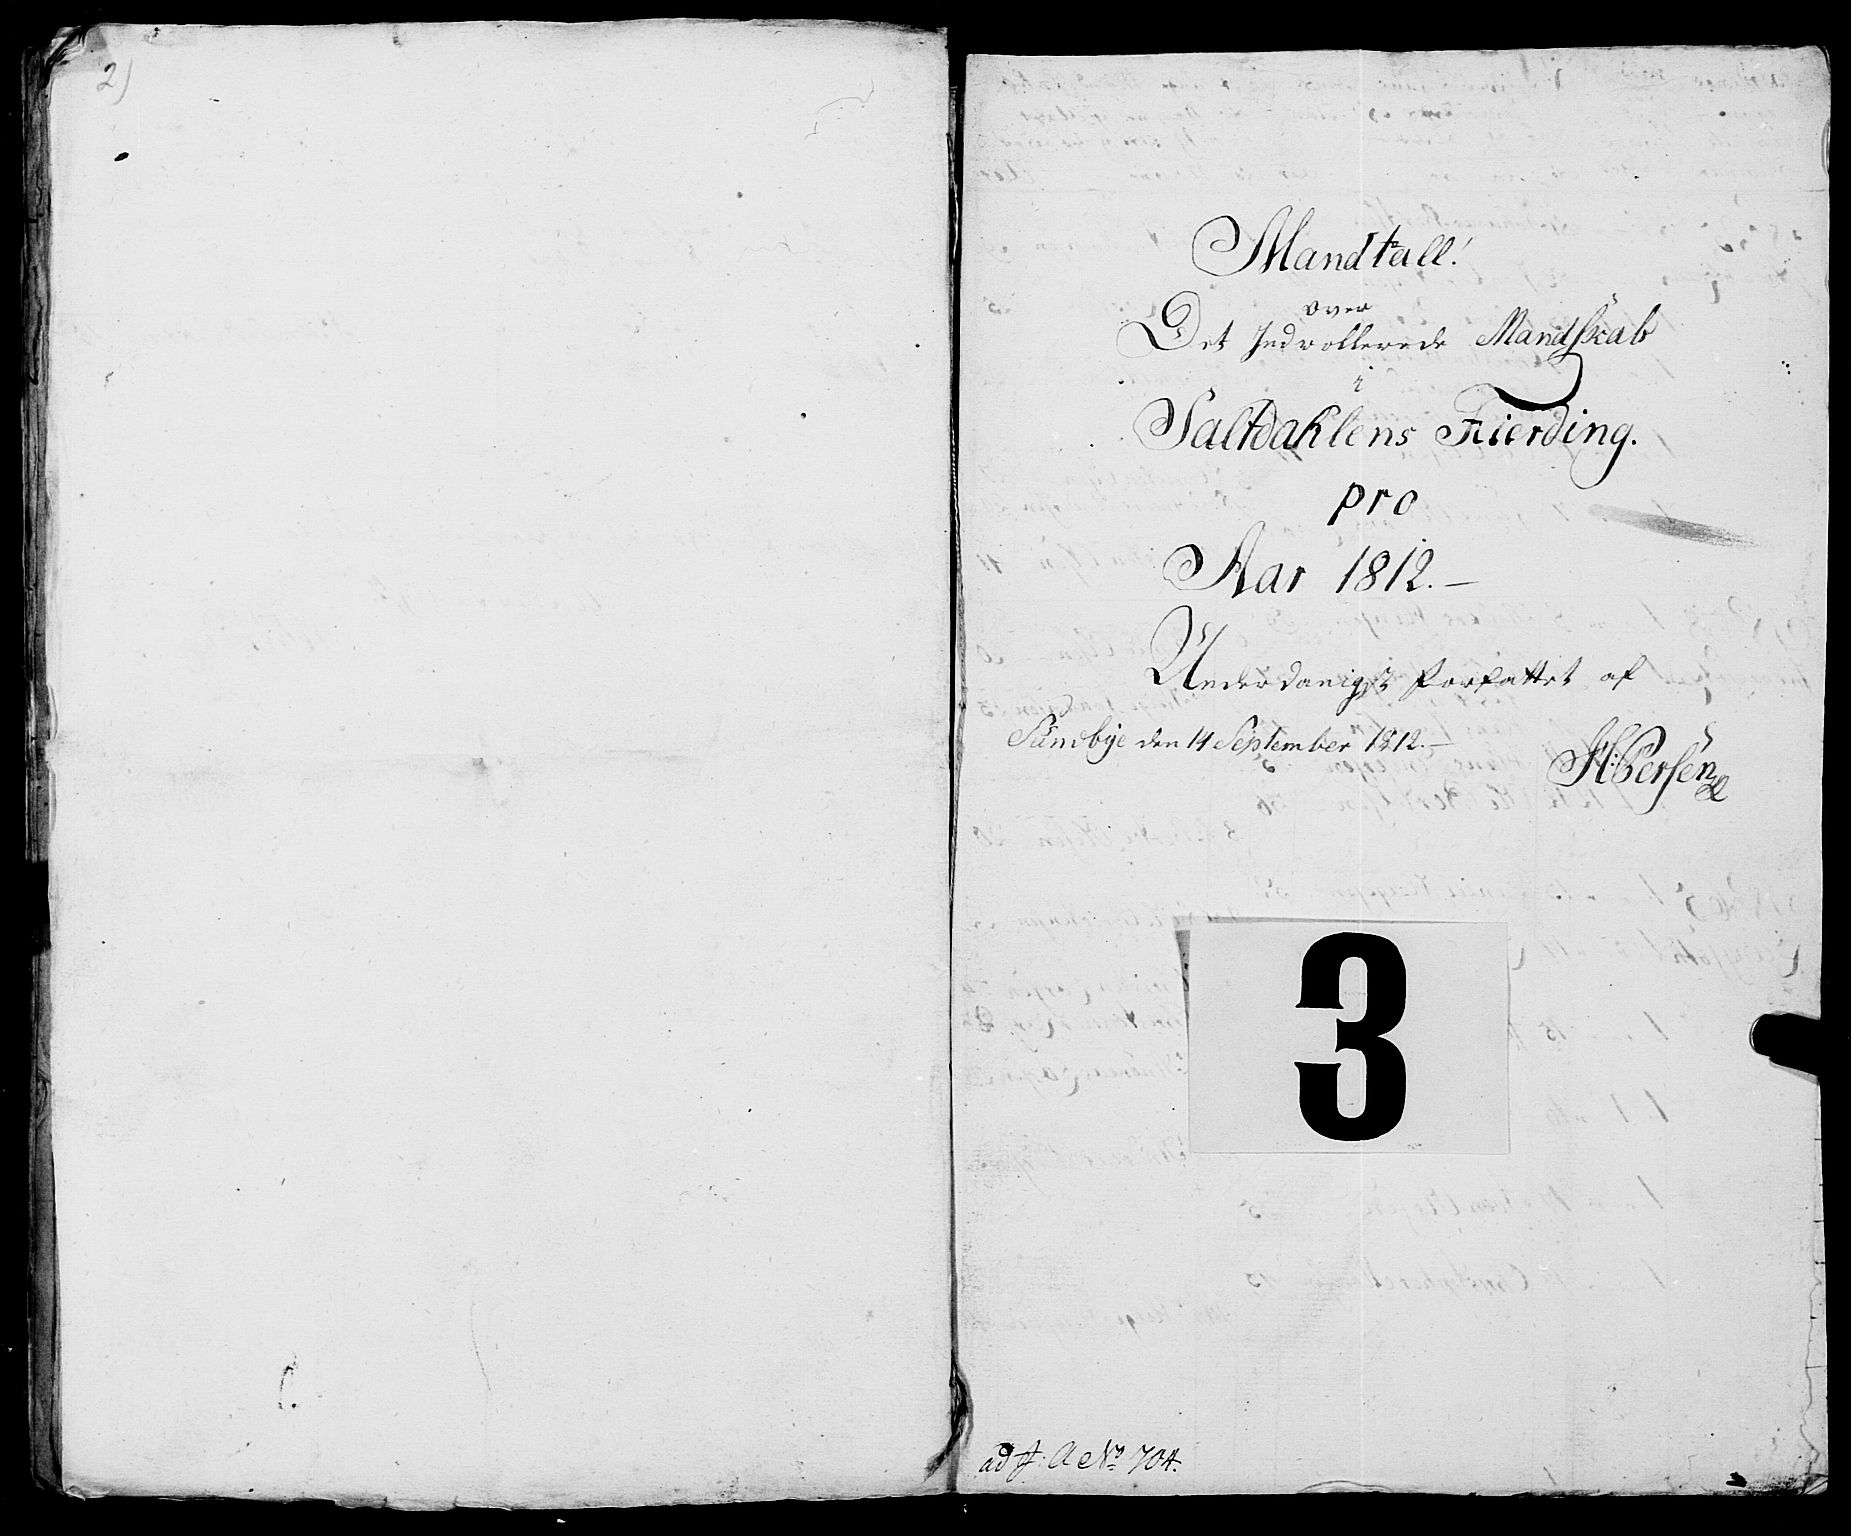 2)
Mandtall!
over
Det Indrollerede Mandskab
i
Saltdahlens Fierding.
pro
Aar 1812.—
Underdanigst Forfattet af
Sundbye den 14 September 1812.—
H: Persen
3
ad J: A No 704.